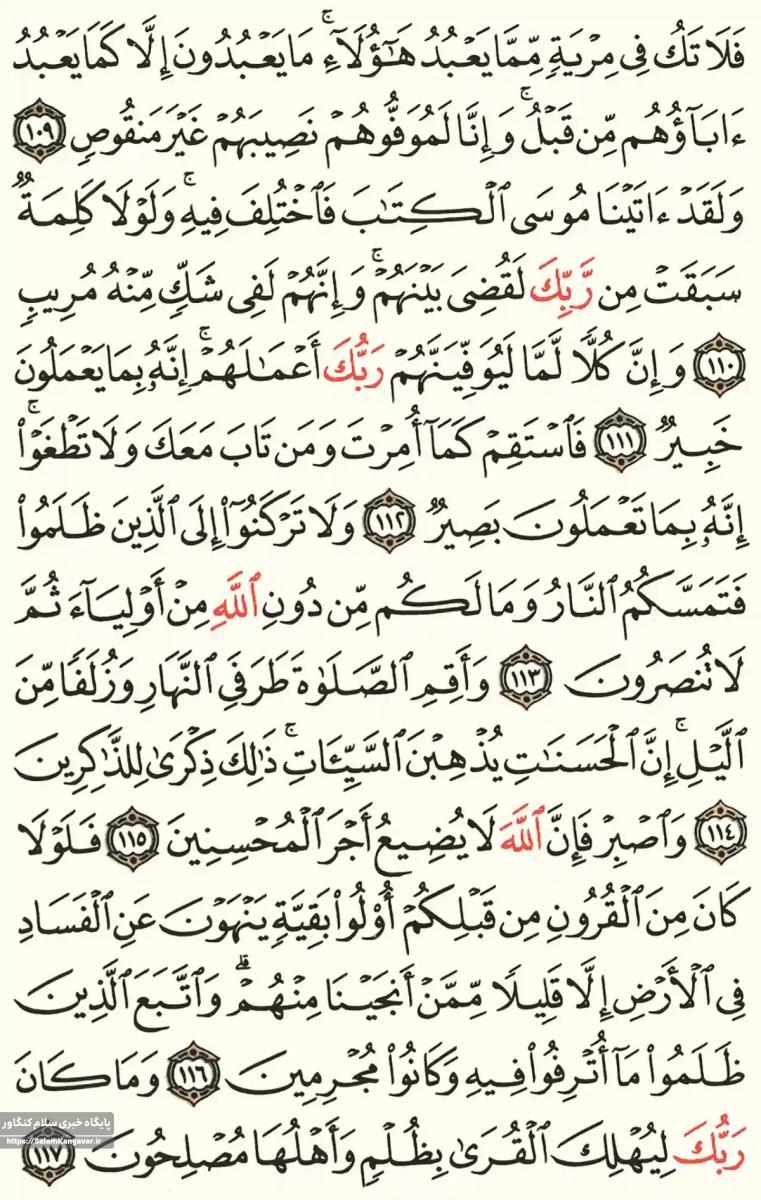 فَلَا تَكُ فِى مِرْيَةٍ مِّمَّا يَعْبُدُ هَٰٓؤُلَآءِ ۚ مَا يَعْبُدُونَ إِلَّا كَمَا يَعْبُدُ
ءَابَآؤُهُم مِّن قَبْلُ ۚ وَإِنَّا لَمُوَفُّوهُمْ نَصِيبَهُمْ غَيْرَ مَنقُوصٍ ١٠٩
وَلَقَدْ ءَاتَيْنَا مُوسَى ٱلْكِتَٰبَ فَٱخْتُلِفَ فِيهِ ۚ وَلَوْلَا كَلِمَةٌ
سَبَقَتْ مِن رَّبِّكَ لَقُضِىَ بَيْنَهُمْ ۚ وَإِنَّهُمْ لَفِى شَكٍّ مِّنْهُ مُرِيبٍ
١١٠ وَإِنَّ كُلًّا لَّمَّا لَيُوَفِّيَنَّهُمْ رَبُّكَ أَعْمَٰلَهُمْ ۚ إِنَّهُۥ بِمَا يَعْمَلُونَ
خَبِيرٌ ١١١ فَٱسْتَقِمْ كَمَآ أُمِرْتَ وَمَن تَابَ مَعَكَ وَلَا تَطْغَوْا۟ ۚ
إِنَّهُۥ بِمَا تَعْمَلُونَ بَصِيرٌ ١١٢ وَلَا تَرْكَنُوٓا۟ إِلَى ٱلَّذِينَ ظَلَمُوا۟
فَتَمَسَّكُمُ ٱلنَّارُ وَمَا لَكُم مِّن دُونِ ٱللَّهِ مِنْ أَوْلِيَآءَ ثُمَّ
لَا تُنصَرُونَ ١١٣ وَأَقِمِ ٱلصَّلَوٰةَ طَرَفَىِ ٱلنَّهَارِ وَزُلَفًا مِّنَ
ٱلَّيْلِ ۚ إِنَّ ٱلْحَسَنَٰتِ يُذْهِبْنَ ٱلسَّيِّـَٔاتِ ۚ ذَٰلِكَ ذِكْرَىٰ لِلذَّٰكِرِينَ
١١٤ وَٱصْبِرْ فَإِنَّ ٱللَّهَ لَا يُضِيعُ أَجْرَ ٱلْمُحْسِنِينَ ١١٥ فَلَوْلَا
كَانَ مِنَ ٱلْقُرُونِ مِن قَبْلِكُمْ أُو۟لُوا۟ بَقِيَّةٍ يَنْهَوْنَ عَنِ ٱلْفَسَادِ
فِى ٱلْأَرْضِ إِلَّا قَلِيلًا مِّمَّنْ أَنجَيْنَا مِنْهُمْ ۗ وَٱتَّبَعَ ٱلَّذِينَ
ظَلَمُوا۟ مَآ أُتْرِفُوا۟ فِيهِ وَكَانُوا۟ مُجْرِمِينَ ١١٦ وَمَا كَانَ
رَبُّكَ لِيُهْلِكَ ٱلْقُرَىٰ بِظُلْمٍ وَأَهْلُهَا مُصْلِحُونَ ١١٧
پایگاه خبری سلام کنگاور
https://SalamKangavar.ir